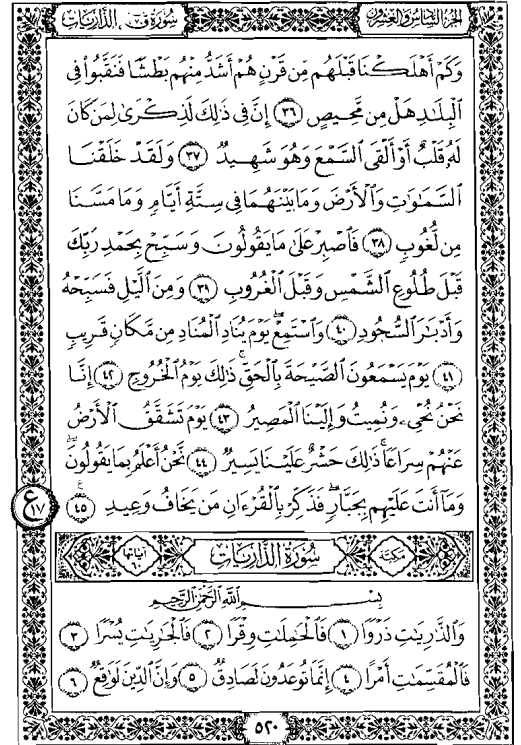 الجزء السادس والعشرون
سورة ق، الذاريات
وَكَمْ أَهْلَكْنَا قَبْلَهُم مِّن قَرْنٍ هُمْ أَشَدُّ مِنْهُم بَطْشًا فَنَقَّبُوا۟ فِى
ٱلْبِلَـٰدِ هَلْ مِن مَّحِيصٍ ٣٦ إِنَّ فِى ذَٰلِكَ لَذِكْرَىٰ لِمَن كَانَ
لَهُۥ قَلْبٌ أَوْ أَلْقَى ٱلسَّمْعَ وَهُوَ شَهِيدٌ ٣٧ وَلَقَدْ خَلَقْنَا
ٱلسَّمَـٰوَٰتِ وَٱلْأَرْضَ وَمَا بَيْنَهُمَا فِى سِتَّةِ أَيَّامٍ وَمَا مَسَّنَا
مِن لُّغُوبٍ ٣٨ فَٱصْبِرْ عَلَىٰ مَا يَقُولُونَ وَسَبِّحْ بِحَمْدِ رَبِّكَ
قَبْلَ طُلُوعِ ٱلشَّمْسِ وَقَبْلَ ٱلْغُرُوبِ ٣٩ وَمِنَ ٱلَّيْلِ فَسَبِّحْهُ
وَأَدْبَـٰرَ ٱلسُّجُودِ ٤٠ وَٱسْتَمِعْ يَوْمَ يُنَادِ ٱلْمُنَادِ مِن مَّكَانٍ قَرِيبٍ
٤١ يَوْمَ يَسْمَعُونَ ٱلصَّيْحَةَ بِٱلْحَقِّ ۚ ذَٰلِكَ يَوْمُ ٱلْخُرُوجِ ٤٢ إِنَّا
نَحْنُ نُحْىِۦ وَنُمِيتُ وَإِلَيْنَا ٱلْمَصِيرُ ٤٣ يَوْمَ تَشَقَّقُ ٱلْأَرْضُ
عَنْهُمْ سِرَاعًا ۚ ذَٰلِكَ حَشْرٌ عَلَيْنَا يَسِيرٌ ٤٤ نَّحْنُ أَعْلَمُ بِمَا يَقُولُونَ ۖ
وَمَآ أَنتَ عَلَيْهِم بِجَبَّارٍ ۖ فَذَكِّرْ بِٱلْقُرْءَانِ مَن يَخَافُ وَعِيدِ ٤٥
ع ١٧
مكية
سورة الذاريات
آياتها ٦٠
بِسْمِ ٱللَّهِ ٱلرَّحْمَـٰنِ ٱلرَّحِيمِ
وَٱلذَّٰرِيَـٰتِ ذَرْوًا ١ فَٱلْحَـٰمِلَـٰتِ وِقْرًا ٢ فَٱلْجَـٰرِيَـٰتِ يُسْرًا ٣
فَٱلْمُقَسِّمَـٰتِ أَمْرًا ٤ إِنَّمَا تُوعَدُونَ لَصَادِقٌ ٥ وَإِنَّ ٱلدِّينَ لَوَٰقِعٌ ٦
٥٢٠